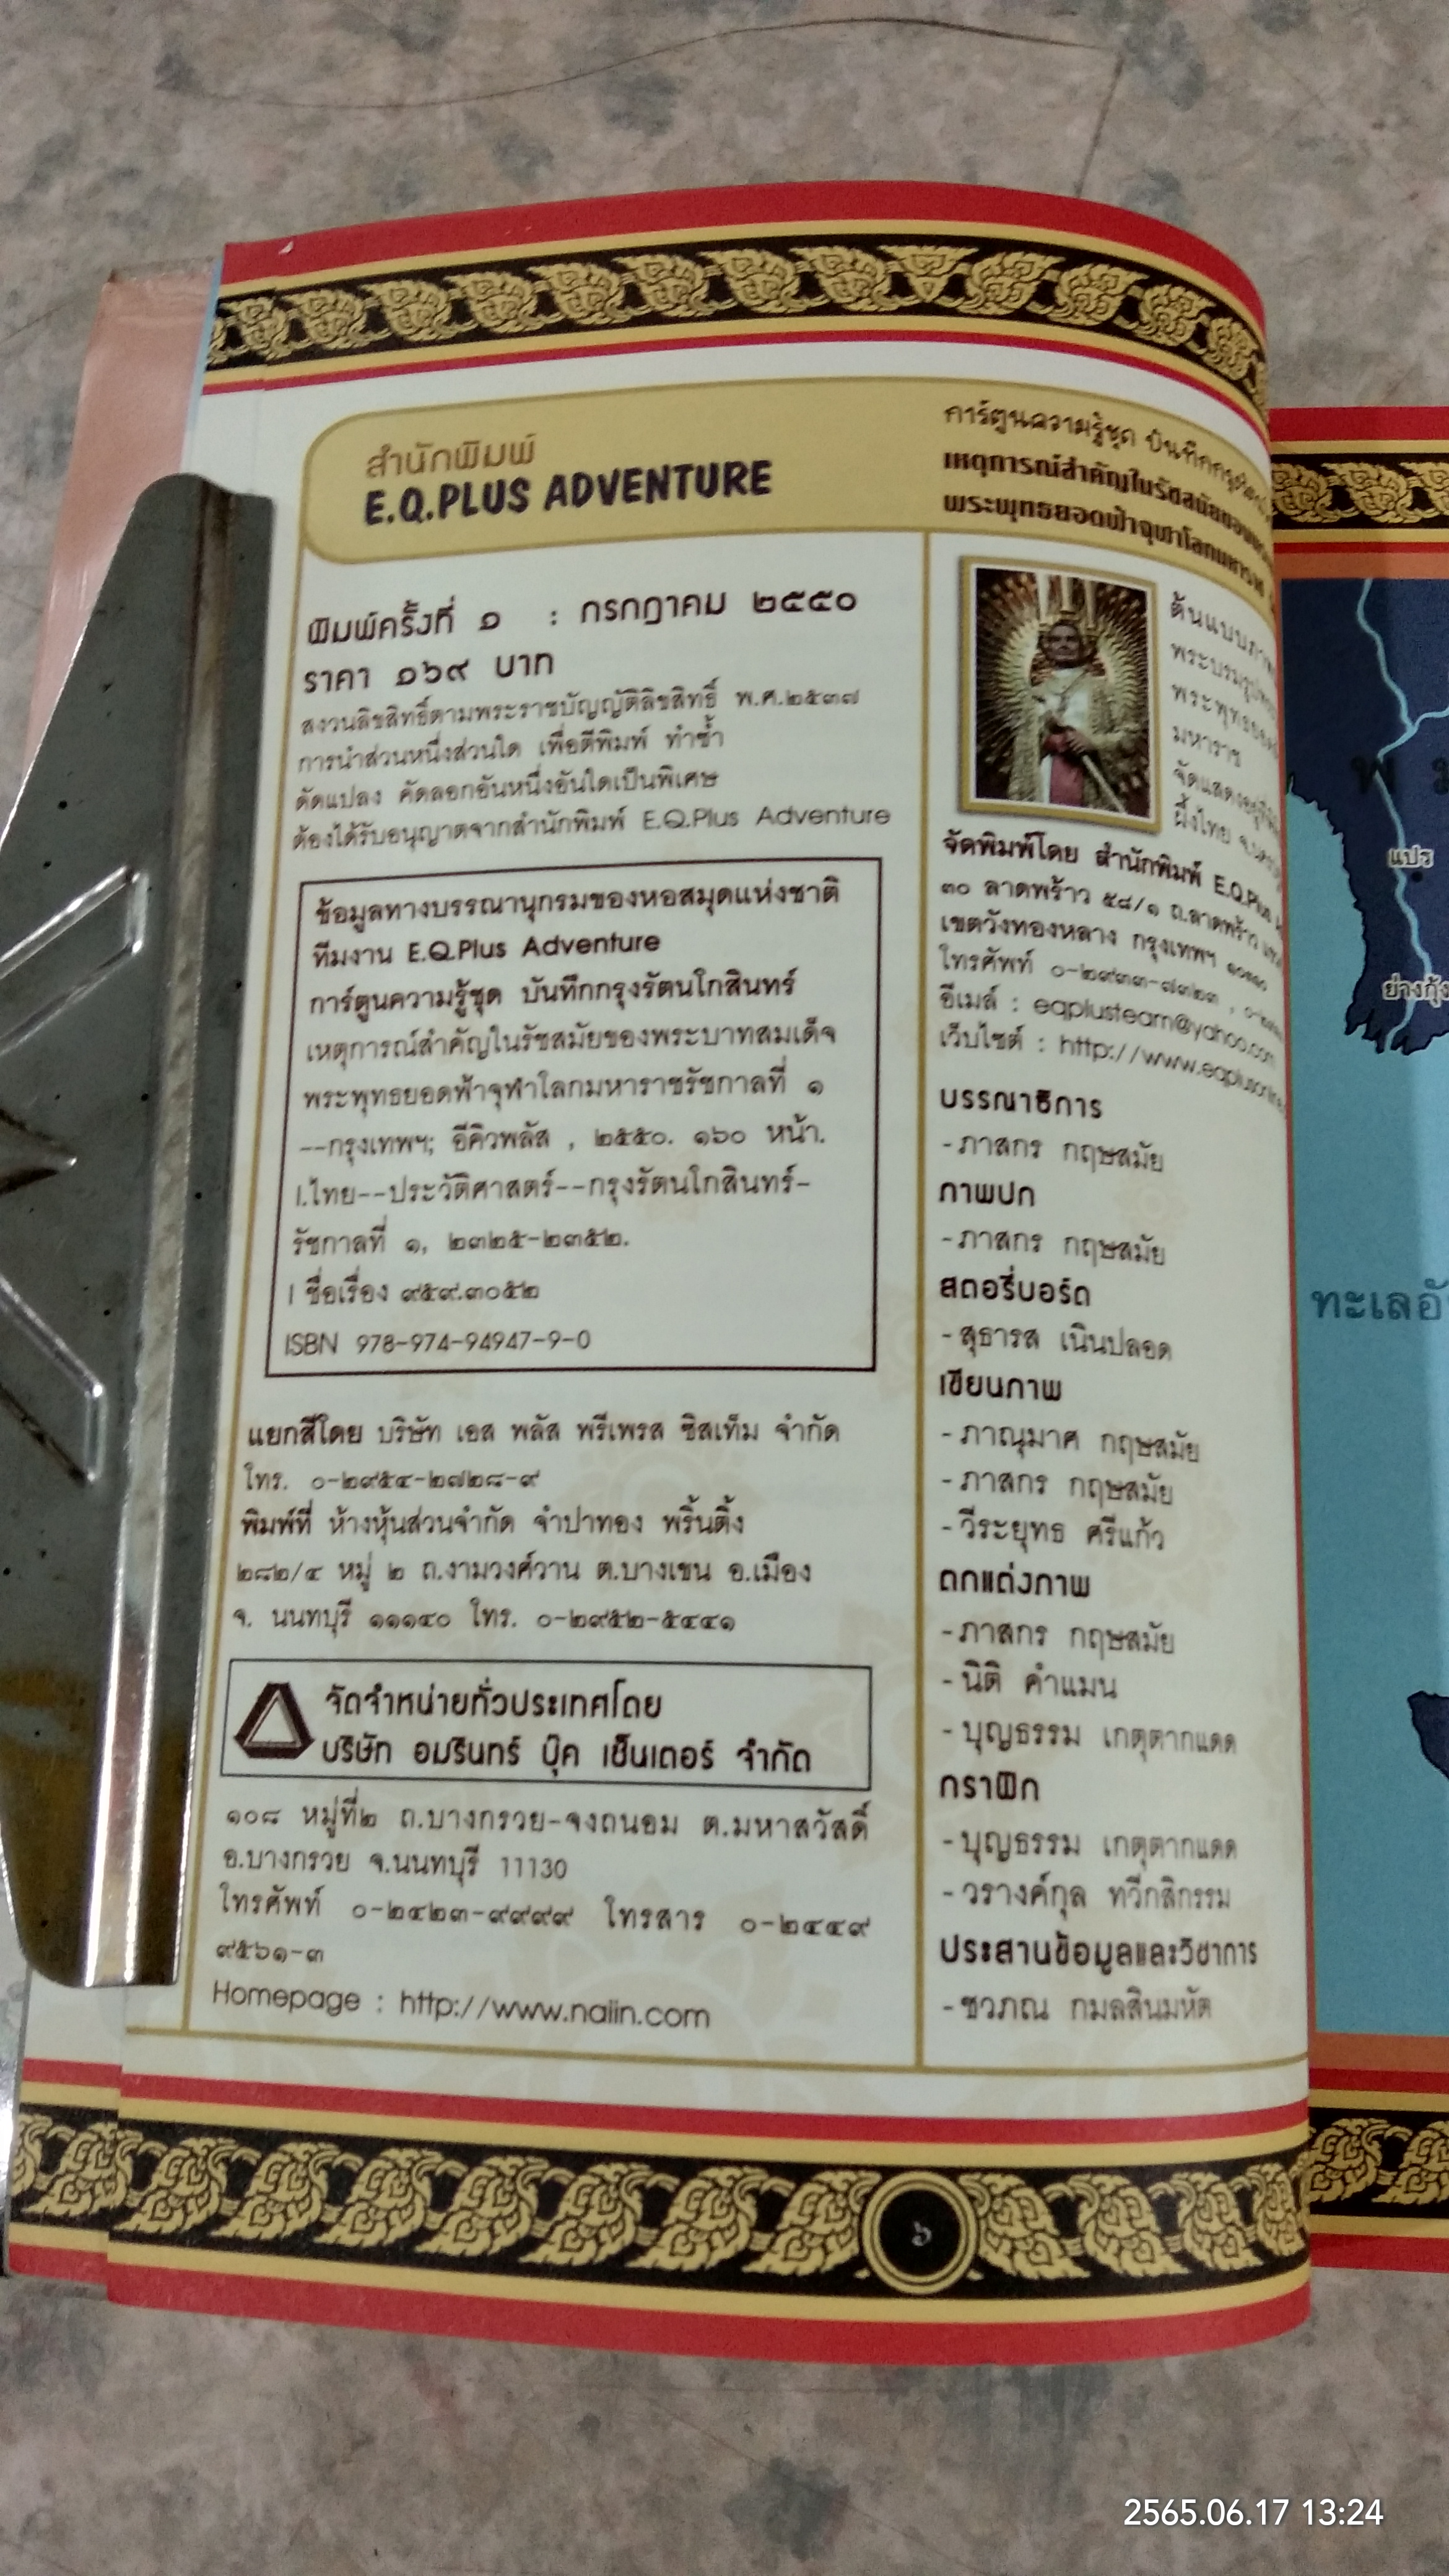 สำนักพิมพ์
E.Q.PLUS ADVENTURE
พิมพ์ครั้งที่ ๑ : กรกฎาคม ๒๕๕๐
ราคา ๑๖๙ บาท
สงวนลิขสิทธิ์ตามพระราชบัญญัติลิขสิทธิ์ พ.ศ.๒๕๓๗
การนำส่วนหนึ่งส่วนใด เพื่อตีพิมพ์ ทำซ้ำ
ดัดแปลง คัดลอกอันหนึ่งอันใดเป็นพิเศษ
ต้องได้รับอนุญาตจากสำนักพิมพ์ E.Q.Plus Adventure
ข้อมูลทางบรรณานุกรมของหอสมุดแห่งชาติ
ทีมงาน E.Q.Plus Adventure
การ์ตูนความรู้ชุด บันทึกกรุงรัตนโกสินทร์
เหตุการณ์สำคัญในรัชสมัยของพระบาทสมเด็จ
พระพุทธยอดฟ้าจุฬาโลกมหาราชรัชกาลที่ ๑
--กรุงเทพฯ; อีคิวพลัส , ๒๕๕๐. ๑๖๐ หน้า.
I.ไทย--ประวัติศาสตร์--กรุงรัตนโกสินทร์-
รัชกาลที่ ๑, ๒๓๒๕-๒๓๕๒.
I ชื่อเรื่อง ๙๕๙.๓๐๕๒
ISBN 978-974-94947-9-0
แยกสีโดย บริษัท เอส พลัส พรีเพรส ซิสเท็ม จำกัด
โทร. ๐-๒๙๕๔-๒๗๒๘-๙
พิมพ์ที่ ห้างหุ้นส่วนจำกัด จำปาทอง พริ้นติ้ง
๒๘๒/๔ หมู่ ๒ ถ.งามวงศ์วาน ต.บางเขน อ.เมือง
จ. นนทบุรี ๑๑๑๔๐ โทร. ๐-๒๙๕๒-๕๔๔๑
จัดจำหน่ายทั่วประเทศโดย
บริษัท อมรินทร์ บุ๊ค เซ็นเตอร์ จำกัด
๑๐๘ หมู่ที่๒ ถ.บางกรวย-จงถนอม ต.มหาสวัสดิ์
อ.บางกรวย จ.นนทบุรี 11130
โทรศัพท์ ๐-๒๔๒๓-๙๙๙๙ โทรสาร ๐-๒๔๔๙
๙๕๖๑-๓
Homepage : http://www.naiin.com
การ์ตูนความรู้ชุด บันทึกกรุง
เหตุการณ์สำคัญในรัชสมัยของ
พระพุทธยอดฟ้าจุฬาโลกมหาราช
ต้นแบบภาพ
พระบรมรูป
พระพุทธยอด
มหาราช
จัดแสดงอยู่
ผึ้งไทย จ.นคร
จัดพิมพ์โดย สำนักพิมพ์ E.Q.Plus
๓๐ ลาดพร้าว ๕๘/๑ ถ.ลาดพร้าว
เขตวังทองหลาง กรุงเทพฯ ๑๐๓๑๐
โทรศัพท์ ๐-๒๙๓๓-๗๓๒๓ ,
อีเมล์ : eqplusteam@yahoo.com
เว็บไซต์ : http://www.eqplusonline
บรรณาธิการ
-ภาสกร กฤษสมัย
ภาพปก
-ภาสกร กฤษสมัย
สตอรี่บอร์ด
-สุธารส เนินปลอด
เขียนภาพ
-ภาณุมาศ กฤษสมัย
-ภาสกร กฤษสมัย
-วีระยุทธ ศรีแก้ว
ตกแต่งภาพ
-ภาสกร กฤษสมัย
-นิติ คำแมน
-บุญธรรม เกตุตากแดด
กราฟิก
-บุญธรรม เกตุตากแดด
-วรางค์กุล ทวีกสิกรรม
ประสานข้อมูลและวิชาการ
-ชวภณ กมลสินมหัต
๖
พ
แปร
ย่างกุ้ง
ทะเลอั
2565.06.17 13:24